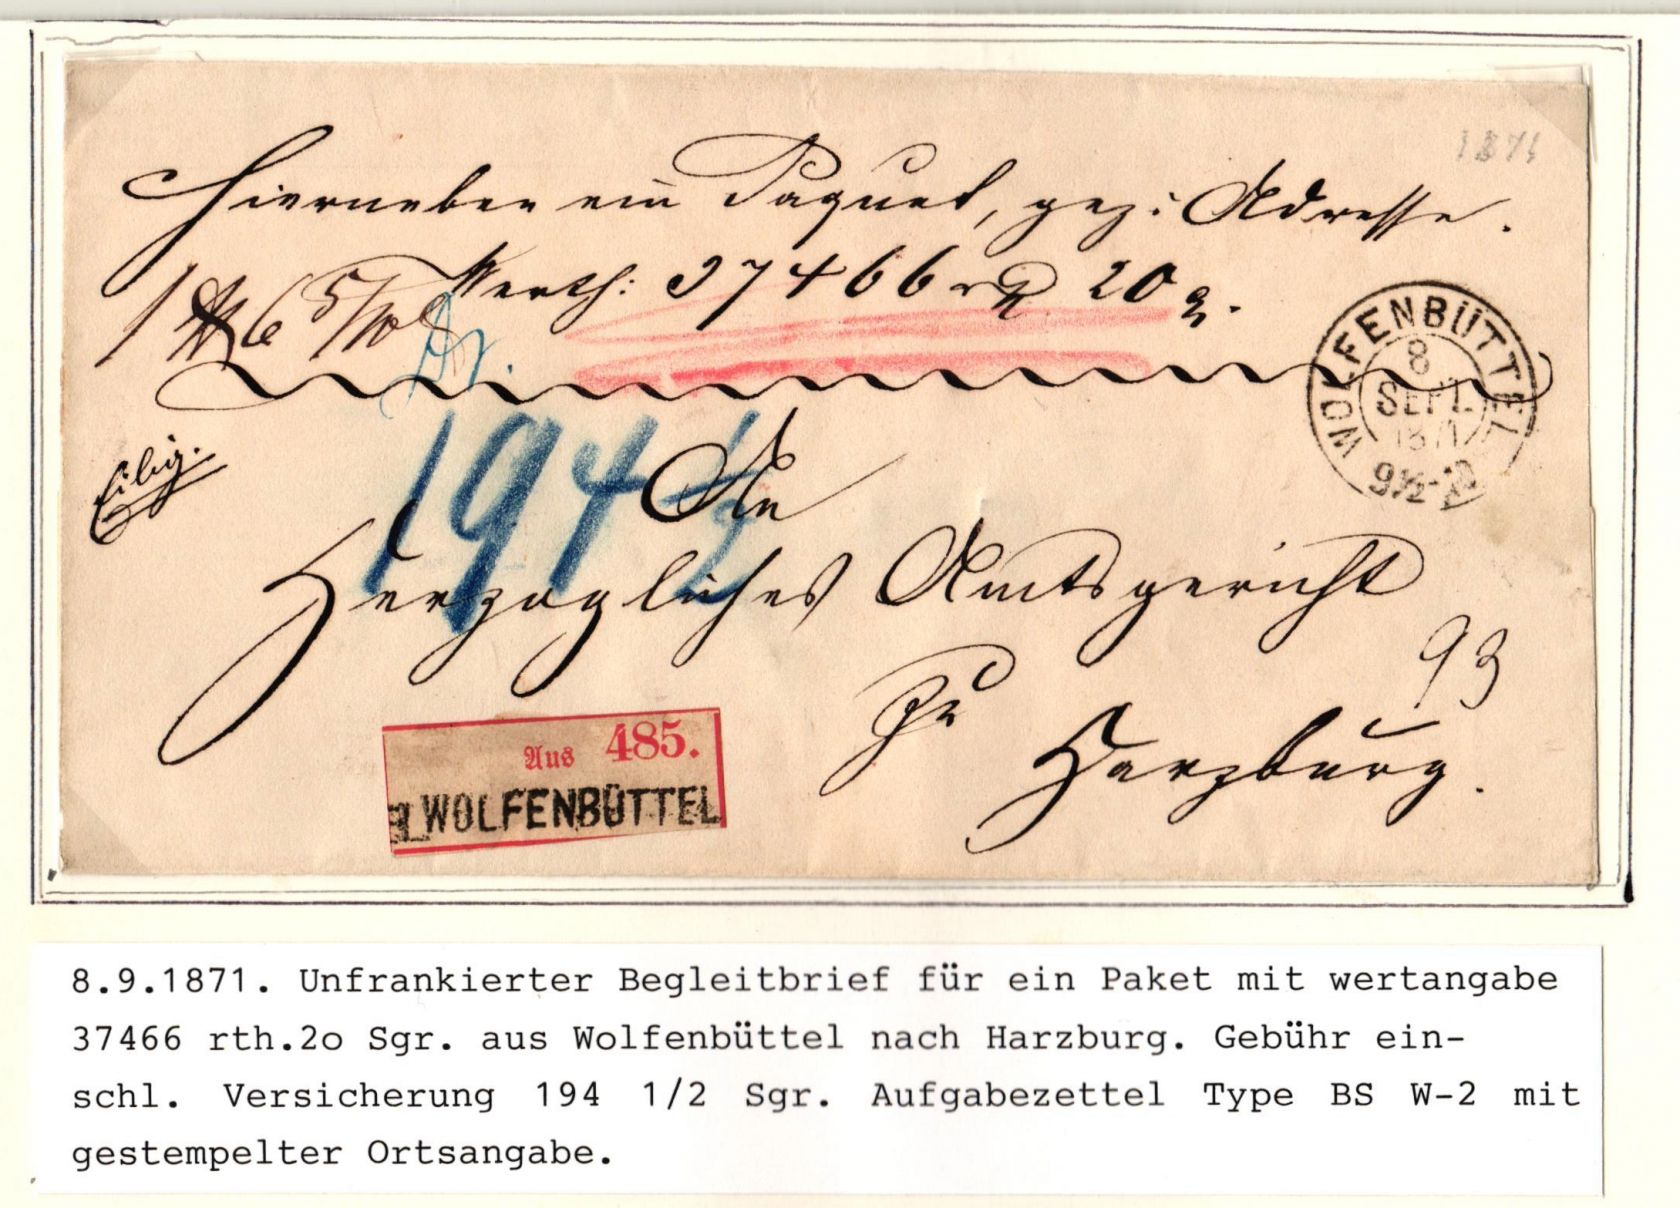 1871
Hierneben ein Paquet, gez: Adresse.
Werth: 37466 rℳ 20 g.
WOLFENBÜTTEL
8
SEPT.
1871
9½-10
Eilig.
194 ½
An
Herzogliches Amtsgericht
93
zu
Harzburg.
Aus 485.
WOLFENBÜTTEL
8.9.1871. Unfrankierter Begleitbrief für ein Paket mit wertangabe
37466 rth.2o Sgr. aus Wolfenbüttel nach Harzburg. Gebühr ein-
schl. Versicherung 194 1/2 Sgr. Aufgabezettel Type BS W-2 mit
gestempelter Ortsangabe.